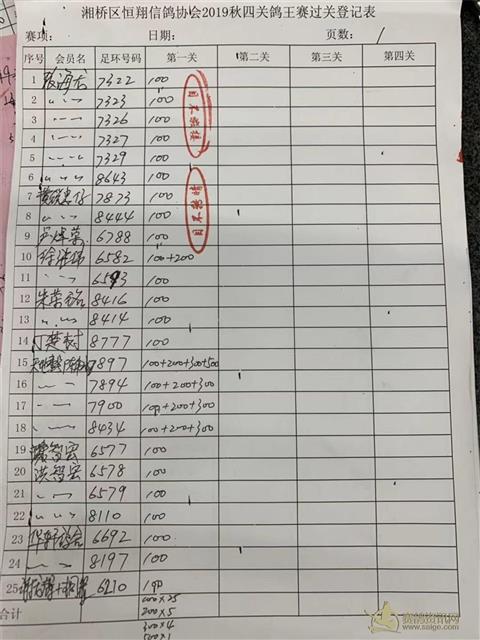 湘桥区恒翔信鸽协会2019秋四关鸽王赛过关登记表
赛项： 日期： 页数： /
序号 会员名 足环号码 第一关 第二关 第三关 第四关
1 7322 100
2 〃 〃 7323 100
3 〃 〃 7326 100
4 〃 〃 7327 100
5 〃 〃 7329 100
6 〃 〃 8643 100
7 7873 100
8 〃 〃 8444 100
9 6788 100
10 6582 100+200
11 〃 〃 6593 100
12 朱荣裕 8416 100
13 〃 〃 8414 100
14 8777 100
15 7897 100+200+300+500
16 〃 〃 7894 100+200+300
17 〃 〃 7900 100+200+300
18 〃 〃 8434 100+200+300
19 智宏 6577 100
20 洪智宏 6578 100
21 〃 〃 6579 100
22 〃 〃 8110 100
23 华轩鸽舍 6692 100
24 〃 〃 8197 100
25 6210 100
合计 100×25
200×5
300×4
500×1
赛鸽资讯网
www.saige.com